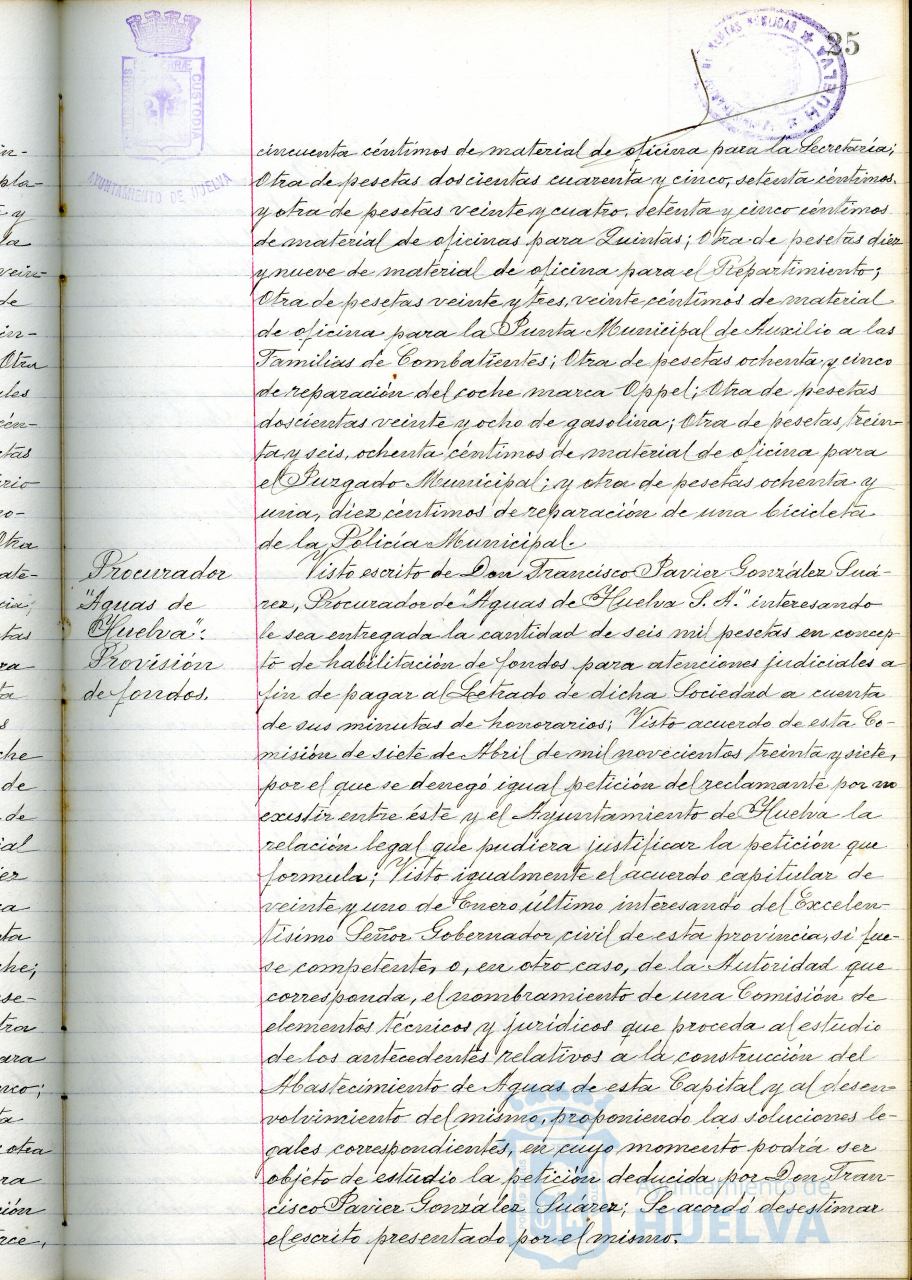 25
AYUNTAMIENTO DE HUELVA
CUSTODIA
HUELVA
cincuenta céntimos de material de oficina para la Secretaría;
Otra de pesetas doscientas cuarenta y cinco, setenta céntimos,
y otra de pesetas veinte y cuatro, setenta y cinco céntimos
de material de oficinas para Quintas; Otra de pesetas diez
y nueve de material de oficina para el Repartimiento;
Otra de pesetas veinte y tres, veinte céntimos de material
de oficina para la Junta Municipal de Auxilio a las
Familias de Combatientes; Otra de pesetas ochenta y cinco
de reparación del coche marca Oppel; Otra de pesetas
doscientas veinte y ocho de gasolina; Otra de pesetas, trein-
ta y seis, ochenta céntimos de material de oficina para
el Juzgado Municipal; y otra de pesetas ochenta y
una, diez céntimos de reparación de una bicicleta
de la Policía Municipal.
Procurador
"Aguas de
Huelva":
Provisión
de fondos.
Visto escrito de Don Francisco Javier González Suá-
rez, Procurador de "Aguas de Huelva S. A." interesando
le sea entregada la cantidad de seis mil pesetas en concep-
to de habilitación de fondos para atenciones judiciales a
fin de pagar al Letrado de dicha Sociedad a cuenta
de sus minutas de honorarios; Visto acuerdo de esta Co-
misión de siete de Abril de mil novecientos treinta y siete,
por el que se denegó igual petición del reclamante por no
existir entre éste y el Ayuntamiento de Huelva la
relación legal que pudiera justificar la petición que
formula; Visto igualmente el acuerdo capitular de
veinte y uno de Enero último interesando del Excelen-
tísimo Señor Gobernador civil de esta provincia, si fue-
se competente, o, en otro caso, de la Autoridad que
corresponda, el nombramiento de una Comisión de
elementos técnicos y jurídicos que proceda al estudio
de los antecedentes relativos a la construcción del
Abastecimiento de Aguas de esta Capital y al desen-
volvimiento del mismo, proponiendo las soluciones le-
gales correspondientes, en cuyo momento podrá ser
objeto de estudio la petición deducida por Don Fran-
cisco Javier González Suárez; Se acordó desestimar
el escrito presentado por el mismo.
Ayuntamiento de
HUELVA